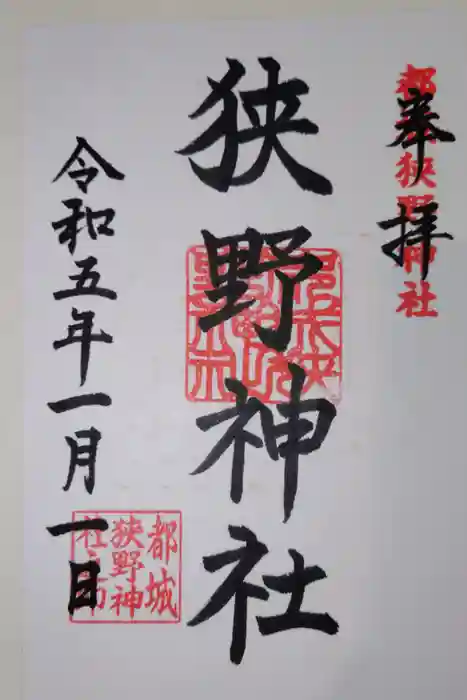 奉拝
都城狭野神社
狭野神社
令和五年一月一日
都城
狭野神
社之印